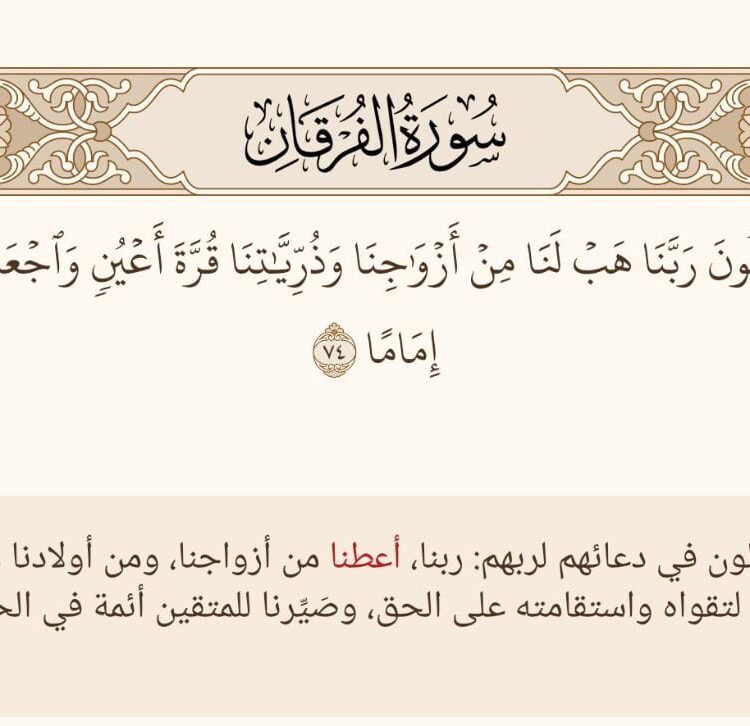 سُورَةُ الفُرْقَانِ
رَبَّنَا هَبْ لَنَا مِنْ أَزْوَٰجِنَا وَذُرِّيَّـٰتِنَا قُرَّةَ أَعْيُنٍ
إِمَامًا ٧٤
في دعائهم لربهم: ربنا، أعطنا من أزواجنا، ومن أولادنا
لتقواه واستقامته على الحق، وصَيِّرنا للمتقين أئمة في